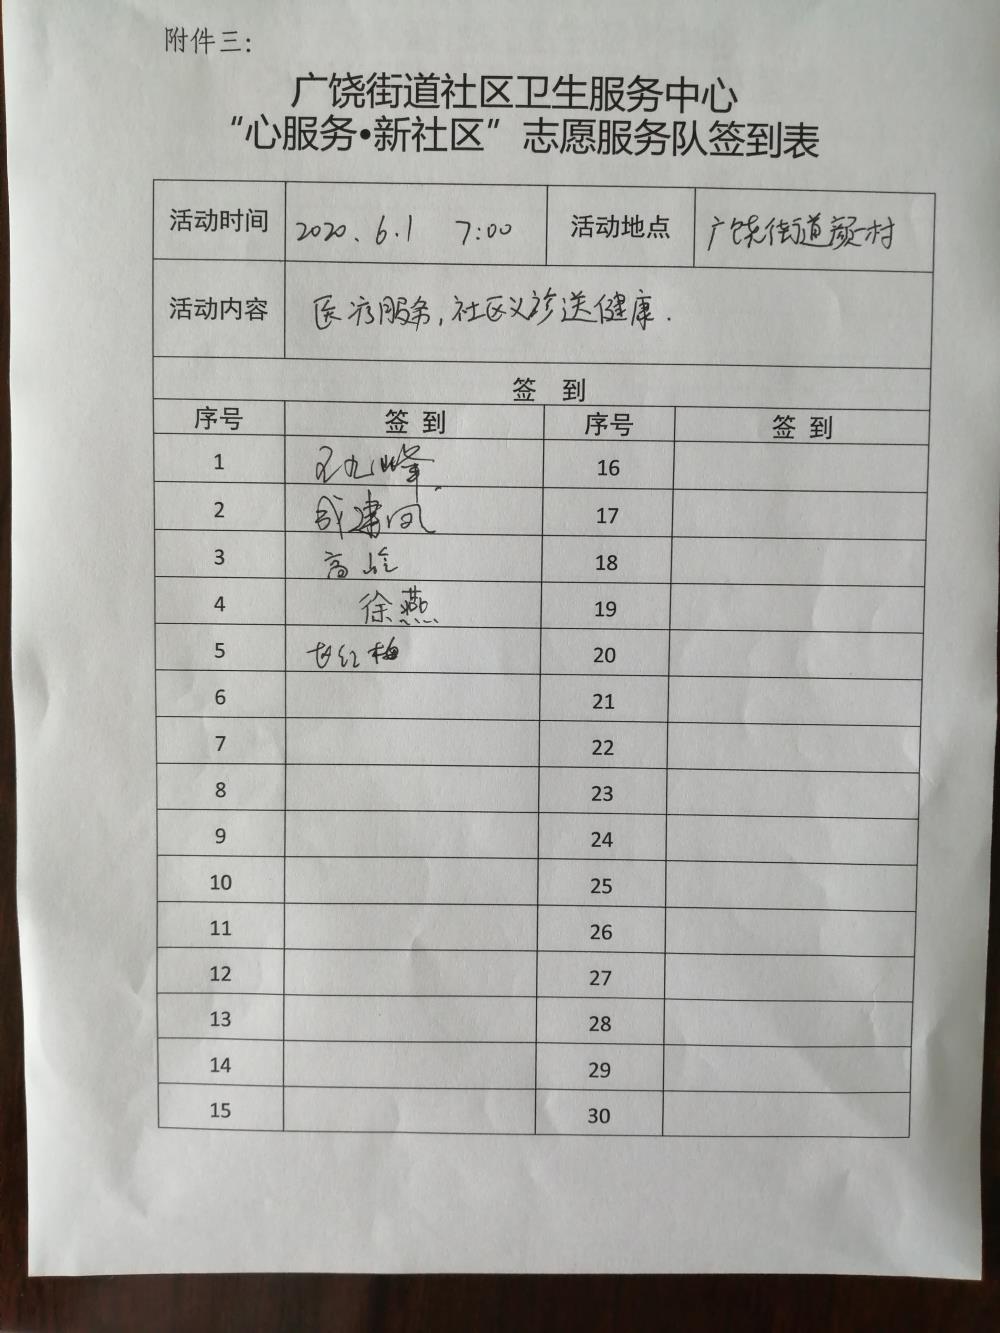 附件三:
广饶街道社区卫生服务中心
“心服务•新社区”志愿服务队签到表
活动时间 2020.6.1 7:00 活动地点 广饶街道颜村
活动内容 医疗服务,社区义诊送健康.
签 到
序号 签到 序号 签到
1 王九峰 16
2 成建凤 17
3 高岭 18
4 徐燕 19
5 红梅 20
6 21
7 22
8 23
9 24
10 25
11 26
12 27
13 28
14 29
15 30